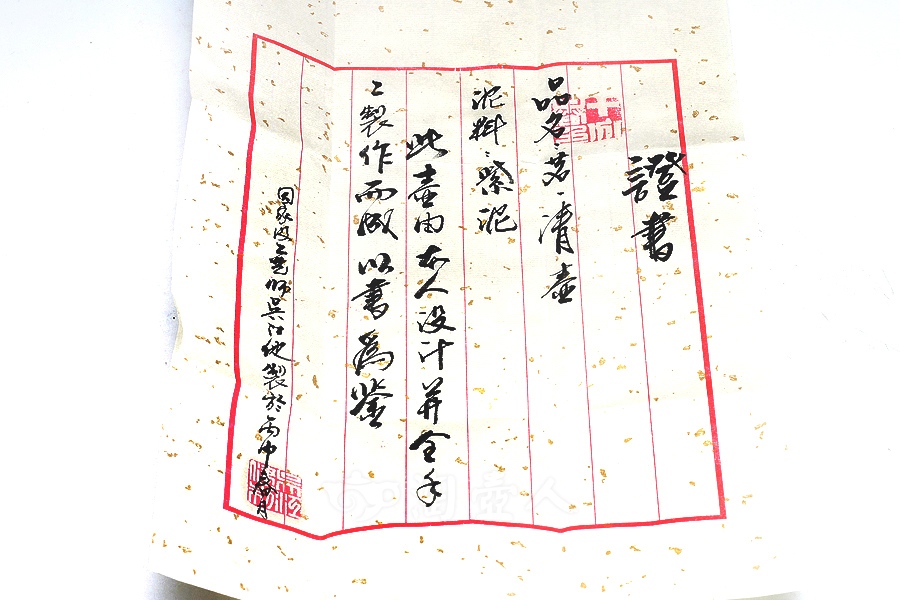 證書
品名：茗清壺
泥料：紫泥
此壺由本人设计并全手
工製作而成以書為鑒
国家级工艺师吴江製於丙申春月